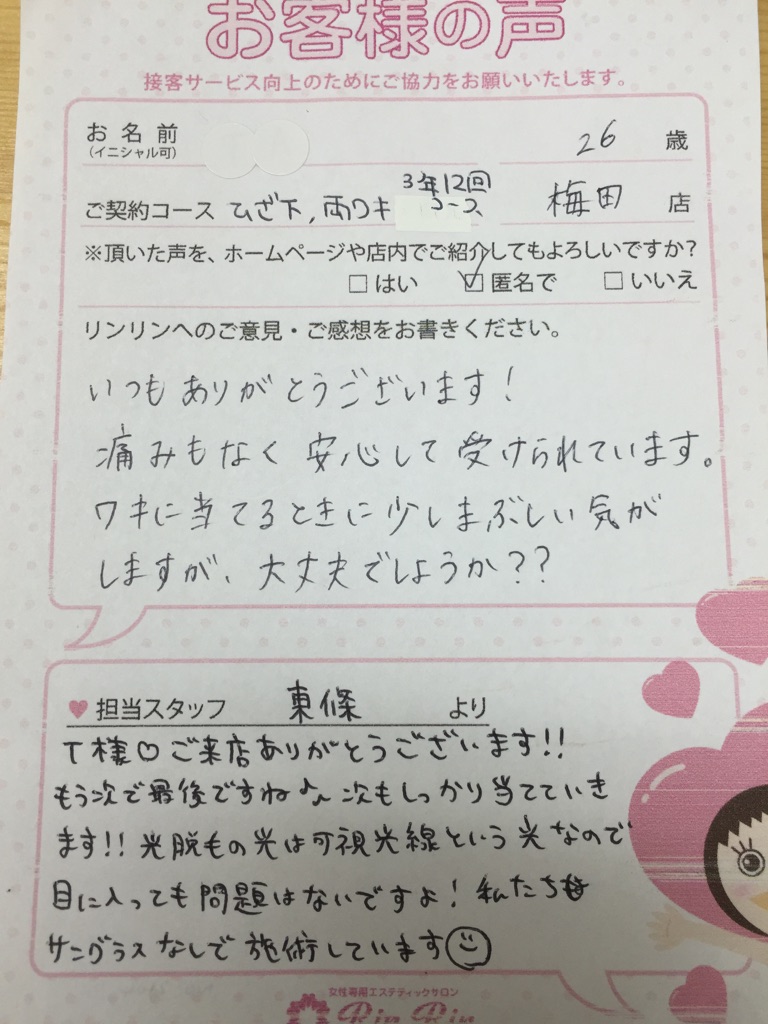 お客様の声
接客サービス向上のためにご協力をお願いいたします。
お名前
(イニシャル可)
26 歳
3年12回
ご契約コース ひざ下,両ワキ コース 梅田 店
※頂いた声を、ホームページや店内でご紹介してもよろしいですか?
□はい ☑匿名で □いいえ
リンリンへのご意見・ご感想をお書きください。
いつもありがとうございます!
痛みもなく安心して受けられています。
ワキに当てるときに少しまぶしい気が
しますが、大丈夫でしょうか??
♥担当スタッフ 東條 より
T様♡ご来店ありがとうございます!!
もう次で最後ですね♪ 次もしっかり当てていき
ます!! 光脱もの光は可視光線という光なので
目に入っても問題はないですよ! 私たちも
サングラスなしで施術しています☺
女性専用エステティックサロン
Rin Rin